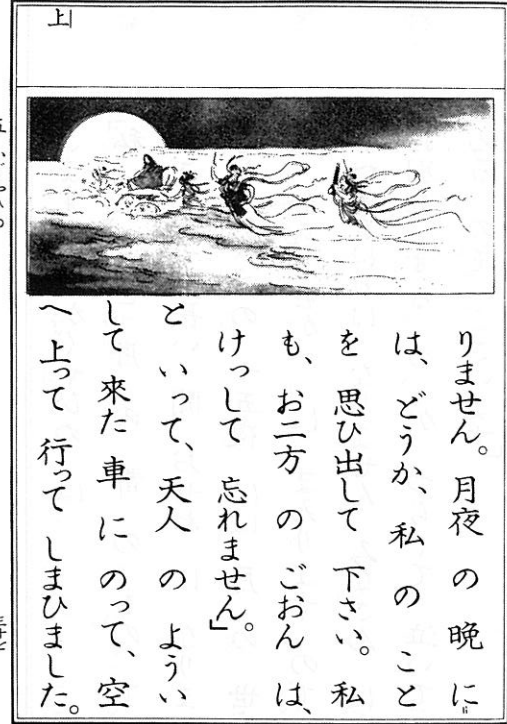 上
りません。月夜 の 晩 に
は、どうか、私 の こと
を 思ひ出して 下さい。私
も、お二方 の ごおん は、
けっして 忘れません。」
と いって、天人 の ようい
して 來た 車 に のって、空
へ 上って 行って しまひました。